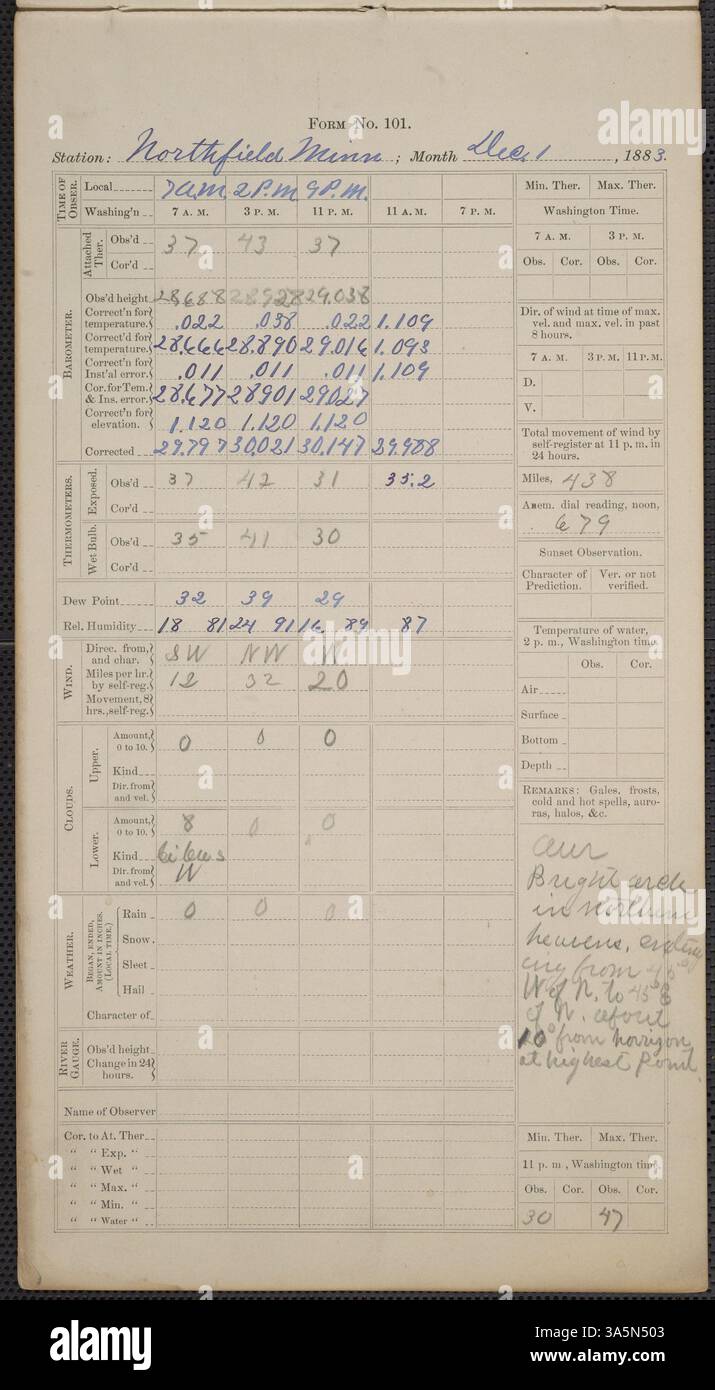 FORM No. 101.
Station: Northfield Minn ; Month Dec, 1 , 1883.
TIME OF OBSER. Local 7 a.m. 2 P.m. 9 P.m.
Washing'n 7 A. M. 3 P. M. 11 P. M. 11 A. M. 7 P. M.
Attached Ther. Obs'd 37 43 37
Cor'd
BAROMETER.
Obs'd height 28.688 28.928 29.038
Correct'n for temperature. .022 .038 .022 1.109
Correct'd for temperature. 28.666 28.890 29.016 1.093
Correct'n for Inst'al error. .011 .011 .011 1.109
Cor. for Tem. & Ins. error. 28.677 28.901 29.027
Correct'n for elevation. 1.120 1.120 1.120
Corrected 29.797 30.021 30.147 29.988
THERMOMETERS.
Exposed. Obs'd 37 42 31 35.2
Cor'd
Wet Bulb. Obs'd 35 41 30
Cor'd
Dew Point 32 39 29
Rel. Humidity 18 81 24 91 16 89 87
WIND.
Direc. from, and char. SW NW W
Miles per hr. by self-reg. 12 32 20
Movement, 8 hrs., self-reg.
CLOUDS.
Upper. Amount, 0 to 10. 0 0 0
Kind
Dir. from and vel.
Lower. Amount, 0 to 10. 8 0 0
Kind
Dir. from and vel. W
WEATHER.
BEGAN, ENDED, AMOUNT IN INCHES. (LOCAL TIME.)
Rain 0 0 0
Snow.
Sleet
Hail
Character of
RIVER GAUGE.
Obs'd height
Change in 24 hours.
Name of Observer
Cor. to At. Ther
" " Exp. "
" " Wet "
" " Max. "
" " Min. "
" " Water "
Min. Ther. Max. Ther.
Washington Time.
7 A. M. 3 P. M.
Obs. Cor. Obs. Cor.
Dir. of wind at time of max. vel. and max. vel. in past 8 hours.
7 A. M. 3 P. M. 11 P. M.
D.
V.
Total movement of wind by self-register at 11 p. m. in 24 hours.
Miles, 438
Anem. dial reading, noon,
679
Sunset Observation.
Character of Prediction. Ver. or not verified.
Temperature of water, 2 p. m., Washington time.
Obs. Cor.
Air
Surface
Bottom
Depth
REMARKS: Gales, frosts, cold and hot spells, auroras, halos, &c.
aur
Bright arch
in northern
heavens, exten
ding from 45°
W of N. to 45° E
of N. about
10° from horizon
at highest point.
Min. Ther. Max. Ther.
11 p. m, Washington time.
Obs. Cor. Obs. Cor.
30 47
alamy
Image ID: 3A5N503
www.alamy.com